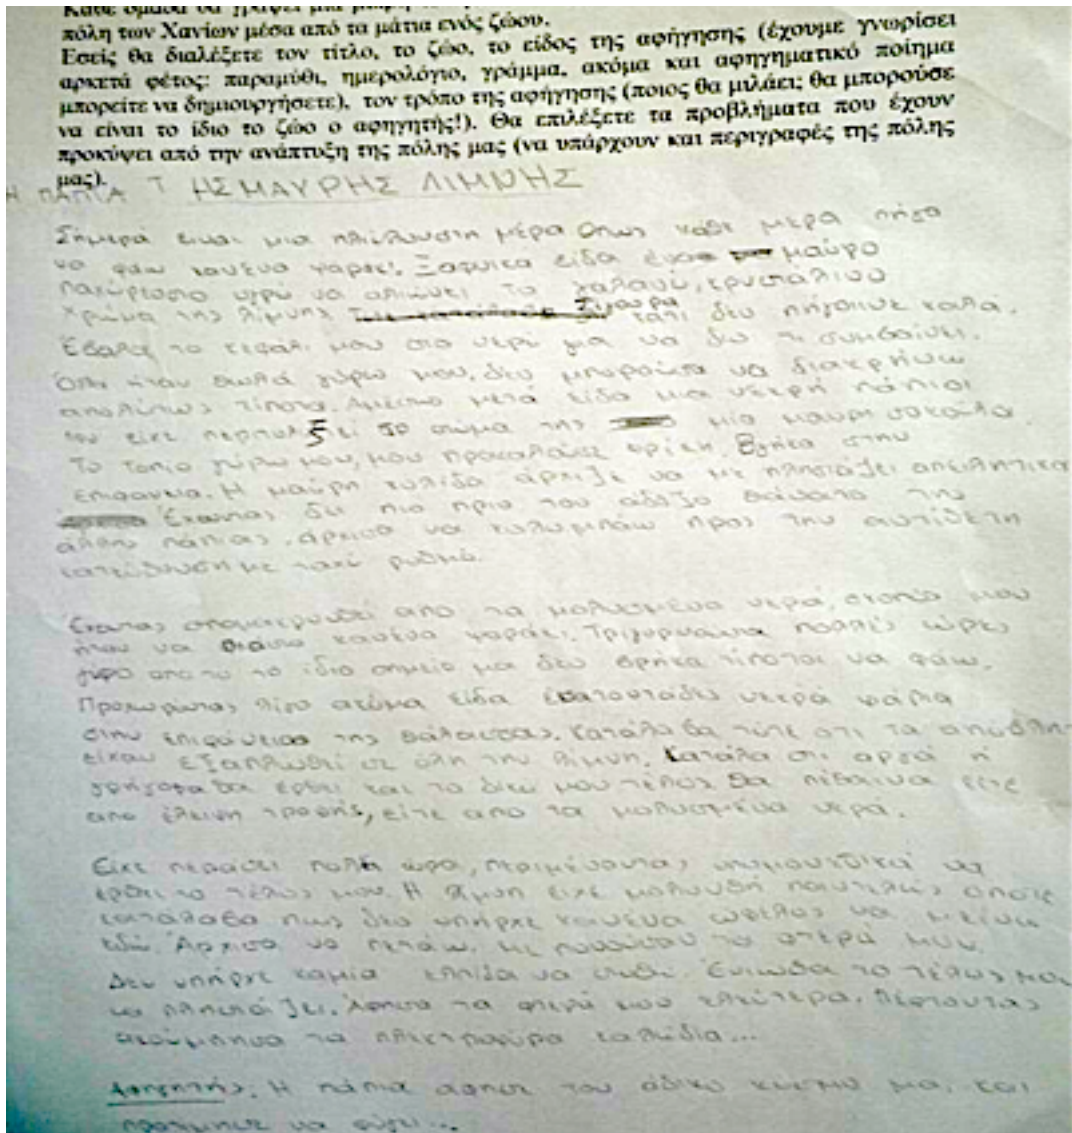 Κάθε ομάδα θα γράψει μια μικρή
πόλη των Χανίων μέσα από τα μάτια ενός ζώου.
Εσείς θα διαλέξετε τον τίτλο, το ζώο, το είδος της αφήγησης (έχουμε γνωρίσει
αρκετά φέτος: παραμύθι, ημερολόγιο, γράμμα, ακόμα και αφηγηματικό ποίημα
μπορείτε να δημιουργήσετε), τον τρόπο της αφήγησης (ποιος θα μιλάει; θα μπορούσε
να είναι το ίδιο το ζώο ο αφηγητής!). Θα επιλέξετε τα προβλήματα που έχουν
προκύψει από την ανάπτυξη της πόλης μας (να υπάρχουν και περιγραφές της πόλης
μας).
Η ΠΑΠΙΑ ΤΗΣ ΜΑΥΡΗΣ ΛΙΜΝΗΣ
Σήμερα είναι μια ηλιόλουστη μέρα Όπως κάθε μέρα πήγα
να φάω κανένα ψάρι. Ξαφνικά είδα ένα μαύρο
παχύρευστο υγρό να αλιώνει το γαλανό, κρυστάλινο
χρώμα της λίμνης Σίγουρα κάτι δεν πήγαινε καλά.
Έβαλα το κεφάλι μου στο νερό για να δω τι συμβαίνει.
Όλα ήταν θολά γύρω μου, δεν μπορούσα να διακρήνω
απολύτως τίποτα. Αμέσως μετά είδα μια νεκρή πάπια
που είχε περιτυλξει το στόμα της μία μαύρη σακούλα
Το τοπίο γύρω μου, μου προκαλούσε φρίκη. Βγήκα στην
επιφάνεια. Η μαύρη κηλίδα άρχιζε να με πλησιάζει απειλητικά
Έχοντας δει πιο πριν τον άδοξο θάνατο της
άλλης πάπιας, άρχισα να κολυμπάω προς την αντίθετη
κατεύθυνση με ταχύ ρυθμό.
Έχοντας απομακρυνθεί από τα μολυσμένα νερά, σκοπός μου
ήταν να πιάσω κανένα ψαράκι. Τριγυρνούσα πολλές ώρες
γύρο από το ίδιο σημείο μα δεν βρήκα τίποτα να φάω.
Προχωρώντας λίγο ακόμα είδα εκατοντάδες νεκρά ψάρια
στην επιφάνεια της θάλασσας. Κατάλαβα τότε ότι τα απόβλητ
είχαν εξαπλωθεί σε όλη την λίμνη. Κατάλα ότι αργά ή
γρήγορα θα έρθει και το δικό μου τέλος θα πέθαινα είτε
από έλειψη τροφής, είτε από τα μολυσμένα νερά.
Είχε περάσει πολλή ώρα, περιμένοντας υπομονετικά να
έρθει το τέλος μου. Η λίμνη είχε μολυνθή παντελώς οπότε
κατάλαβα πως δεν υπήρχε κανένα ώφελος να μείνω
εδώ. Άρχισα να πετάω, με τα φτερά μου.
Δεν υπήρχε καμία ελπίδα να σωθώ. Ένιωθα το τέλος μου
να πλησιάζει. Άφησα τα φτερά μου ελεύτερα. Πέφτοντας
ακούμπησα τα ηλεκτροφόρα καλώδια...
Αφηγητής: Η πάπια άφησε τον άδικο κόσμο μας και
προτίμησε να φύγει...